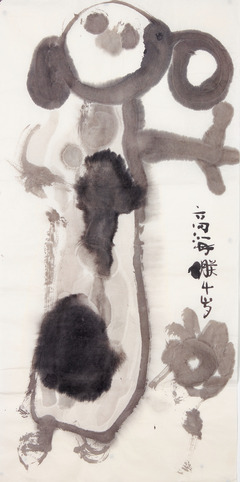 高海4岁